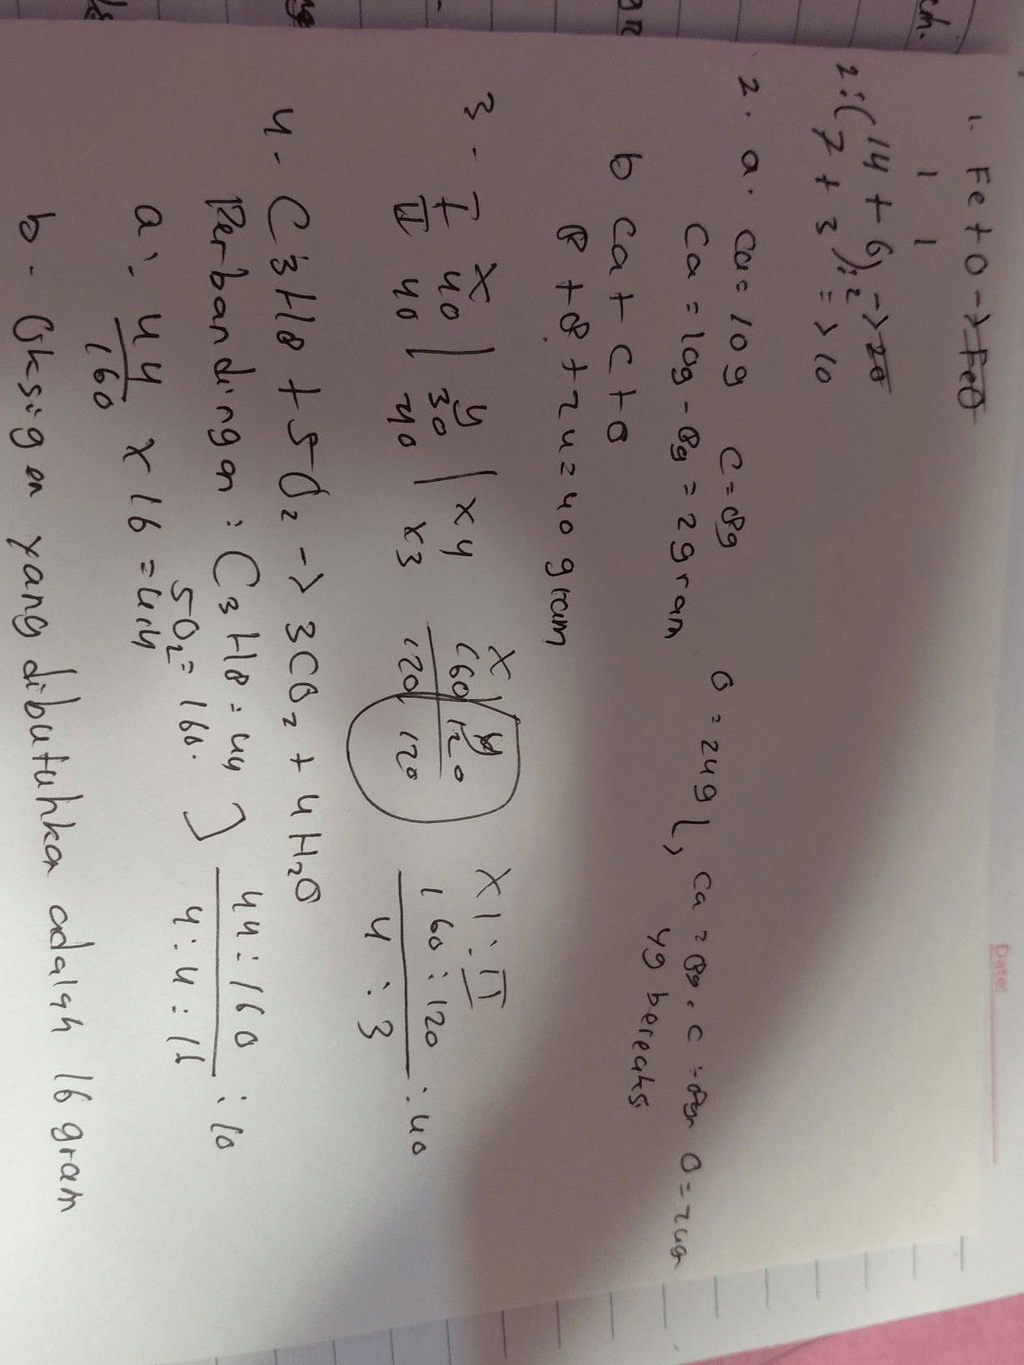 Date:
1. Fe + O -> FeO
1 1
14 + 6 -> 20
2:(7 + 3):2 => 10
2. a. Ca = 10g C = 8g O = 24g Ca = 8g, C = 8gr O = 24gr
Ca = 10g - 8g = 2gram yg bereaksi
b Ca + C + O
8 + 8 + 24 = 40 gram
3 - X y X y X I : II
I 40 | 30 | x4 160 120 160 : 120 : 40
II 40 40 x3 120 120 4 : 3
4 - C3H8 + 5O2 -> 3CO2 + 4H2O
Perbandingan : C3H8 = 44 44 : 160 : 10
5O2 = 160. 4:4 : 16
a : 44/160 x 16 = 4,4
b - Oksigen yang dibutuhkan adalah 16 gram